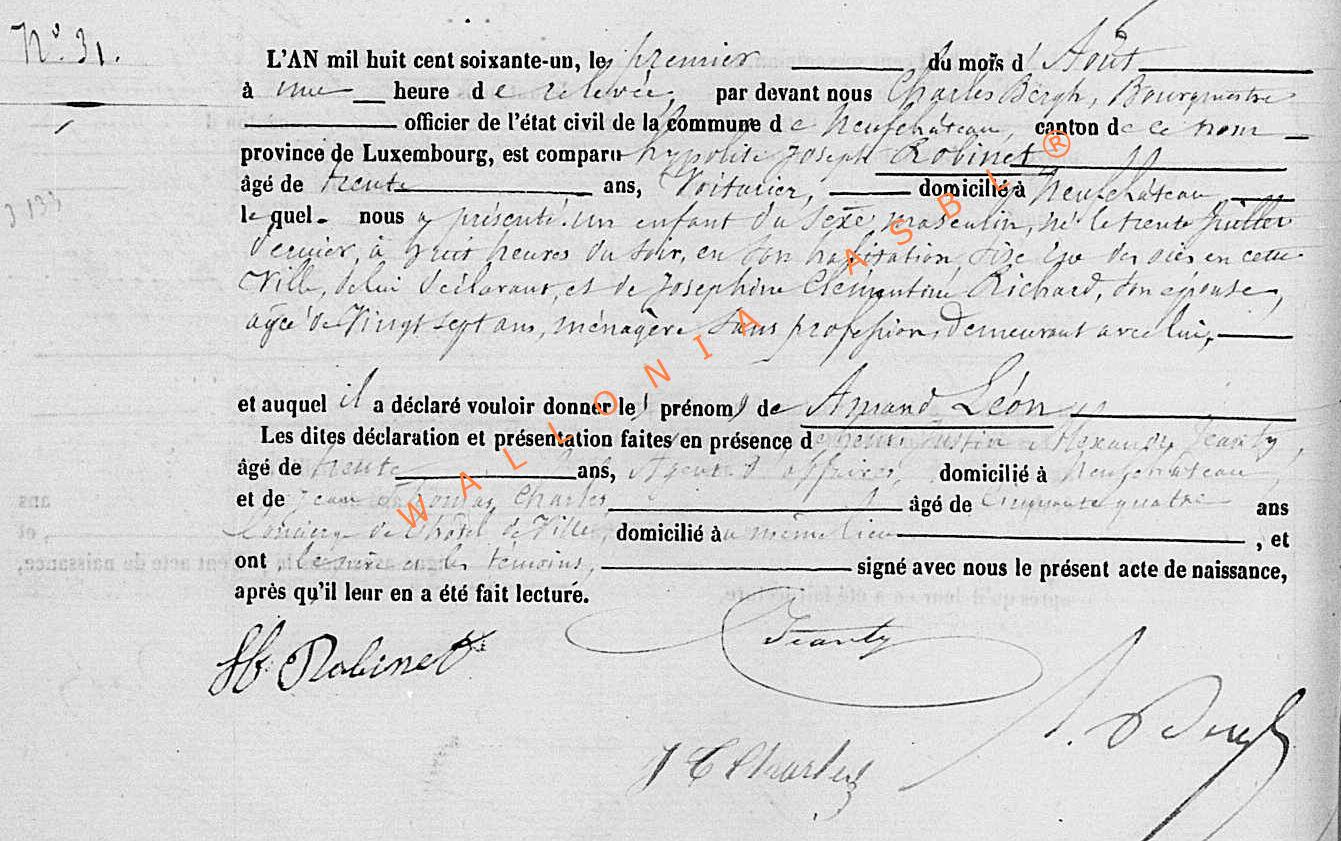 N° 31.
L'AN mil huit cent soixante-un, le premier du mois d' Août
à une heure de relevée, par devant nous Charles Bergh, Bourgmestre
officier de l'état civil de la commune de Neufchâteau, canton de ce nom
province de Luxembourg, est comparu hypolite Joseph Robinet
âgé de trente ans, Voiturier, domicilié à Neufchâteau,
lequel nous a présenté un enfant du sexe masculin, né le trente juillet
dernier, à huit heures du soir, en son habitation, sise en cette
Ville, de lui déclarant, et de Joséphine Clémentine Richard, son épouse,
agée de Vingt sept ans, ménagère sans profession, demeurant avec lui,
et auquel il a déclaré vouloir donner les prénoms de Amand Léon
Les dites déclaration et présentation faites en présence de Justin Alexandre Jeanty,
âgé de trente ans, Agent d'affaires domicilié à Neufchâteau,
et de Jean Charles âgé de Cinquante quatre ans
Concierge de l'hôtel de Ville, domicilié au même lieu , et
ont le père et les témoins, signé avec nous le présent acte de naissance,
après qu'il leur en a été fait lecture.
Robinet
Jeanty
J C Charles
WALLONIA ASBL ®